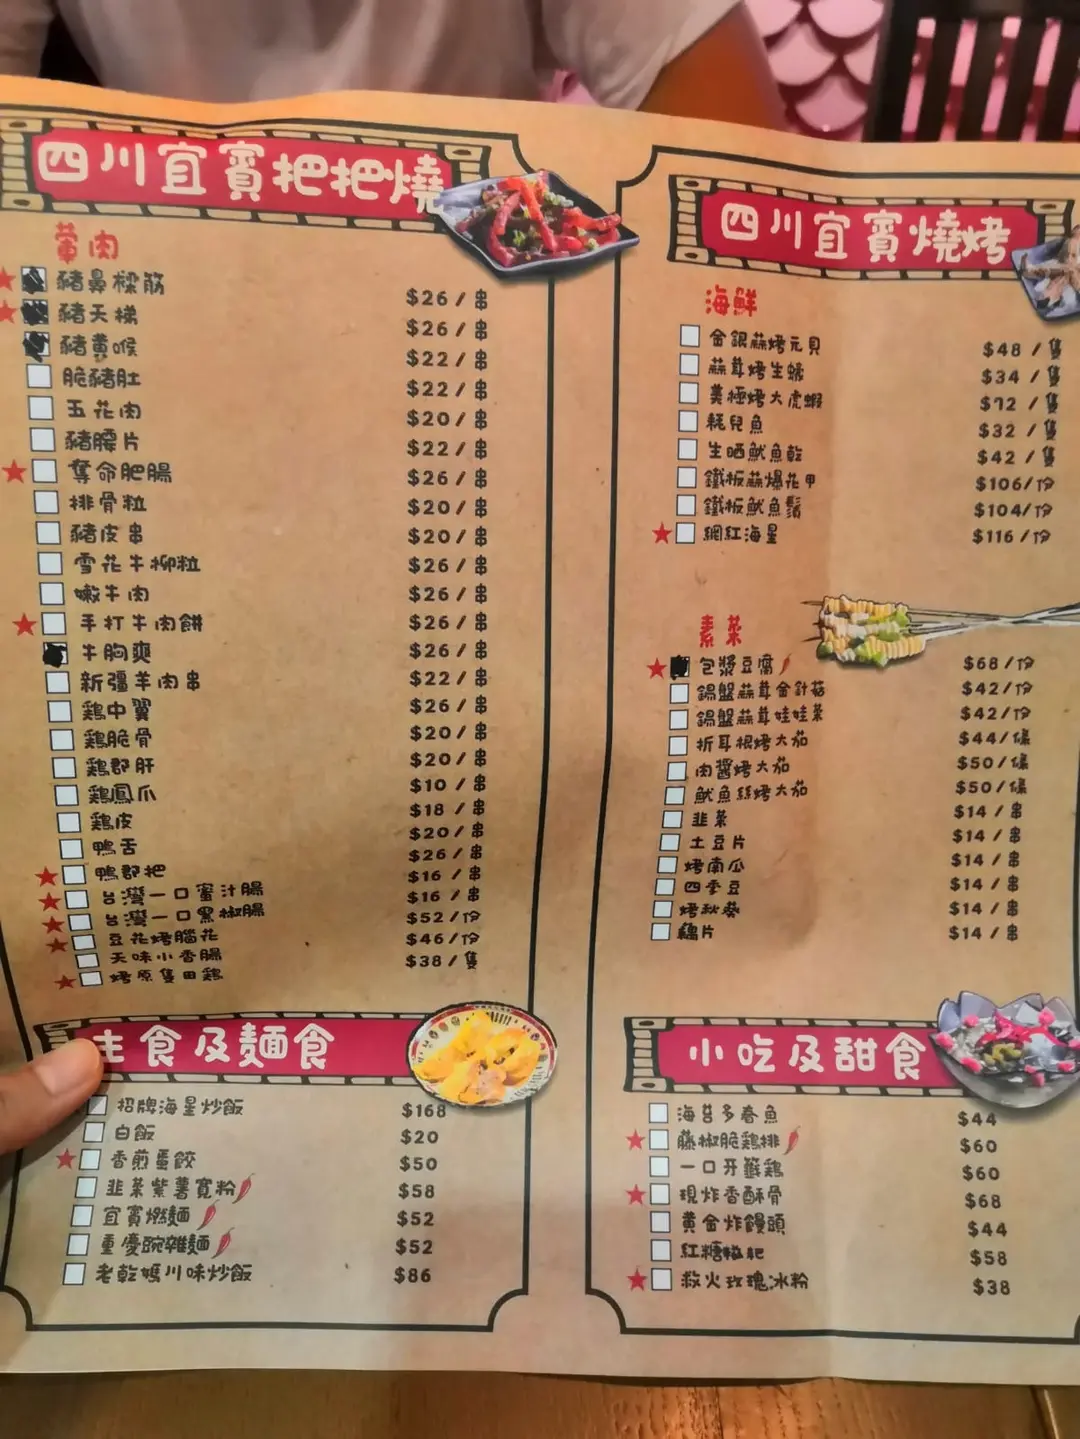 四川宜賓把把燒
葷肉
豬鼻樑筋 $26 / 串
豬天梯 $26 / 串
豬黃喉 $22 / 串
脆豬肚 $22 / 串
五花肉 $20 / 串
豬腰片 $22 / 串
奪命肥腸 $26 / 串
排骨粒 $20 / 串
豬皮串 $20 / 串
雪花牛柳粒 $26 / 串
嫩牛肉 $26 / 串
手打牛肉餅 $26 / 串
牛胸爽 $26 / 串
新疆羊肉串 $22 / 串
鷄中翼 $26 / 串
鷄脆骨 $20 / 串
鷄郡肝 $20 / 串
鷄鳳爪 $10 / 串
鷄皮 $18 / 串
鴨舌 $20 / 串
鴨郡把 $26 / 串
台灣一口蜜汁腸 $16 / 串
台灣一口黑椒腸 $16 / 串
豆花烤腦花 $52/份
天味小香腸 $46/份
烤原隻田鷄 $38 / 隻
主食及麵食
招牌海星炒飯 $168
白飯 $20
香煎蛋餃 $50
韭菜紫薯寬粉 $58
宜賓燃麵 $52
重慶豌雜麵 $52
老乾媽川味炒飯 $86
四川宜賓燒烤
海鮮
金銀蒜烤元貝 $48 / 隻
蒜茸烤生蠔 $34 / 隻
美極烤大虎蝦 $72 / 隻
耗兒魚 $32 / 隻
生晒魷魚乾 $42 / 隻
鐵板蒜爆花甲 $106/份
鐵板魷魚鬚 $104/份
網紅海星 $116 /份
素菜
包漿豆腐 $68/份
錫盤蒜茸金針菇 $42/份
錫盤蒜茸娃娃菜 $42/份
折耳根烤大茄 $44/條
肉醬烤大茄 $50/條
魷魚絲烤大茄 $50/條
韭菜 $14 / 串
土豆片 $14 / 串
烤南瓜 $14 / 串
四季豆 $14 / 串
烤秋葵 $14 / 串
藕片 $14 / 串
小吃及甜食
海苔多春魚 $44
藤椒脆鷄排 $60
一口牙籤鷄 $60
現炸香酥骨 $68
黃金炸饅頭 $44
紅糖糍粑 $58
救火玫瑰冰粉 $38